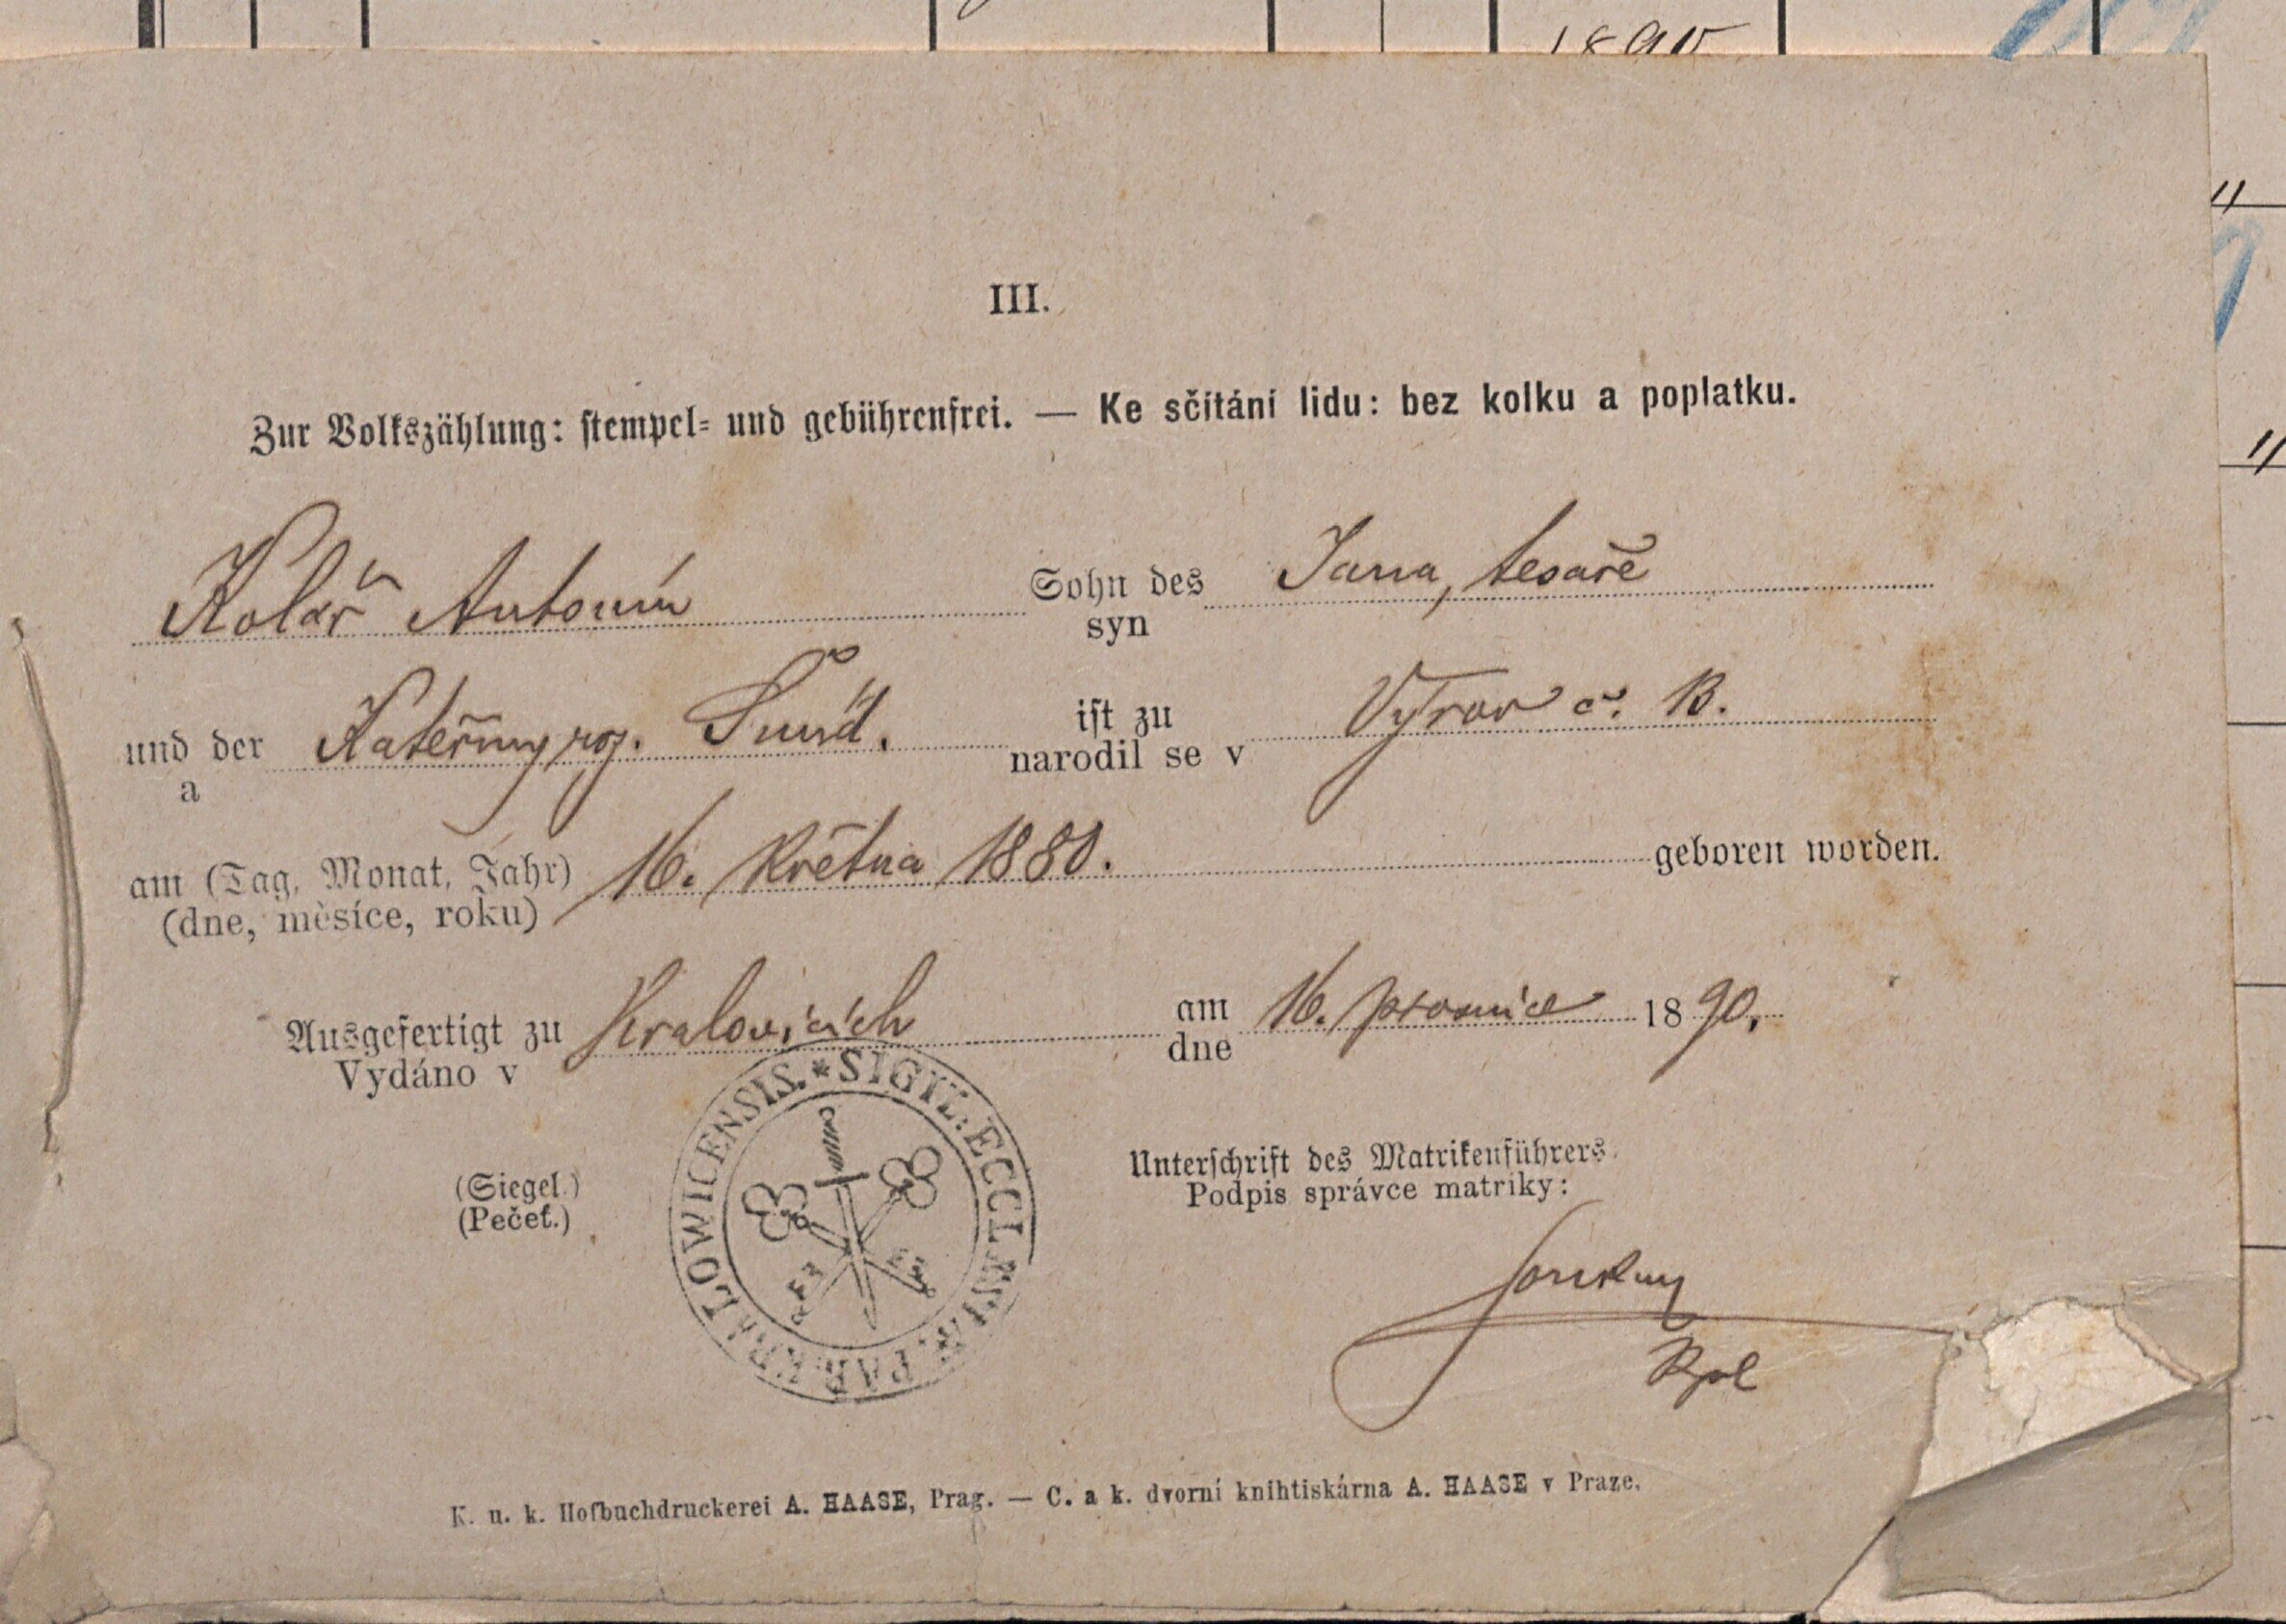 1890
III.
Zur Volkszählung: stempel- und gebührenfrei. — Ke sčítání lidu: bez kolku a poplatku.
Kolář Antonín Sohn des Jana, tesaře
syn
und der Kateřiny roz. ist zu Výrov č. 13.
a narodil se v
am (Tag, Monat, Jahr) 16. května 1880. geboren worden.
(dne, měsíce, roku)
Ausgefertigt zu Kralovicích am 16. prosince 1890.
Vydáno v dne
SIGIL. ECCL. PAR. KRALOWICENSIS. *
(Siegel.) Unterschrift des Matrikenführers.
(Pečeť.) Podpis správce matriky:
Kpl
K. u. k. Hofbuchdruckerei A. HAASE, Prag. — C. a k. dvorní knihtiskárna A. HAASE v Praze.